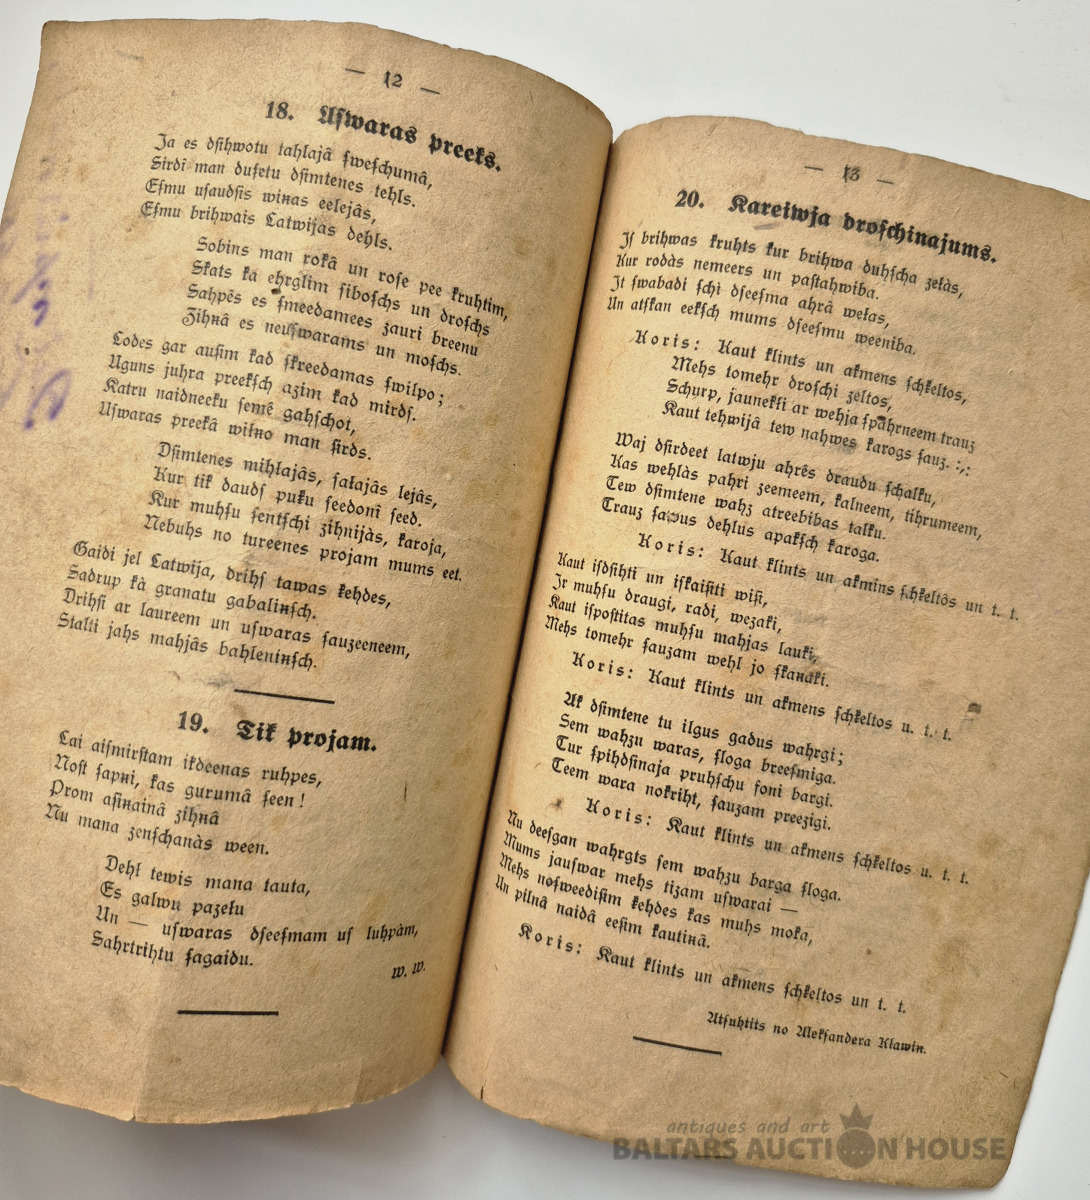 — 12 —
18. Uſwaras preeks.
Ja es dſihwotu tahlajâ ſweſchumâ,
Sirdî man duſetu dſimtenes tehls.
Eſmu uſaudſis wiņas eelejâs,
Eſmu brihwais Latwijas dehls.
Sobins man rokâ un roſe pee kruhtim,
Skats kà ehrglim ſiboſchs un droſchs
Sahpês es ſmeedamees zauri breenu
Zihņâ es neuſwarams un moſchs.
Lodes gar auſim kad ſkreedamas ſwilpo;
Uguns juhra preekſch azim kad mirdſ.
Katru naidneeku ſemê gahſchot,
Uſwaras preekâ wiļņo man ſirds.
Dſimtenes mihļajâs, ſaļajâs lejâs,
Kur tik daudſ puķu ſeedonî ſeed.
Kur muhſu ſentſchi zihnijàs, karoja,
Nebuhs no tureenes projam mums eet.
Gaidi jel Latwija, drihſ tawas ķehdes,
Sadrup kà granatu gabaliņſch.
Drihſi ar laureem un uſwaras ſauzeeneem,
Stalti jahs mahjâs bahleniņſch.
19. Tik projam.
Lai aiſmirſtam ikdeenas ruhpes,
Noſt ſapņi, kas gurumâ ſeen!
Prom aſiņainâ zihņâ
Nu mana zenſchanàs ween.
Dehļ tewis mana tauta,
Es galwu pazeļu
Un — uſwaras dſeeſmam uſ luhpàm,
Sahrtrihtu ſagaidu.
w. w.
— 13 —
20. Kareiwja droſchinajums.
Iſ brihwas kruhts kur brihwa duhſcha zeļàs,
Kur rodàs nemeers un paſtahwiba.
It ſwabadi ſchì dſeeſma ahrâ weļas,
Un atſkan eekſch mums dſeeſmu weeniba.
Koris: Kaut klints un akmens ſchķeltos,
Mehs tomehr droſchi zeltos,
Schurp, jaunekļi ar wehja ſpahrneem trauz
Kaut tehwijâ tew nahwes karogs ſauz. :,:
Waj dſirdeet latwju ahrês draudu ſchalku,
Kas wehlàs pahri zeemeem, kalneem, tihrumeem,
Tew dſimtene wahz atreebibas talku.
Trauz ſawus dehlus apakſch karoga.
Koris: Kaut klints un akmins ſchķeltôs un t. t.
Kaut iſdſihti un iſkaiſiti wiſi,
Ir muhſu draugi, radi, wezaki,
Kaut iſpoſtitas muhſu mahjas lauki,
Mehs tomehr ſauzam wehl jo ſkaņaki.
Koris: Kaut klints un akmens ſchķeltos u. t. t.
Ak dſimtene tu ilgus gadus wahrgi;
Sem wahzu waras, ſloga breeſmiga.
Tur ſpihdſinaja pruhſchu foni bargi.
Teem wara nokriht, ſauzam preezigi.
Koris: Kaut klints un akmens ſchķeltos u. t. t.
Nu deeſgan wahrgts ſem wahzu barga ſloga.
Mums jauſwar mehs tizam uſwarai —
Mehs noſweediſim ķehdes kas muhs moka,
Un pilnâ naidâ eeſim kautiņâ.
Koris: Kaut klints un akmens ſchķeltos un t. t.
Atſuhtits no Alekſandera Kļawiņ.
antiques and art
BALTARS AUCTION HOUSE